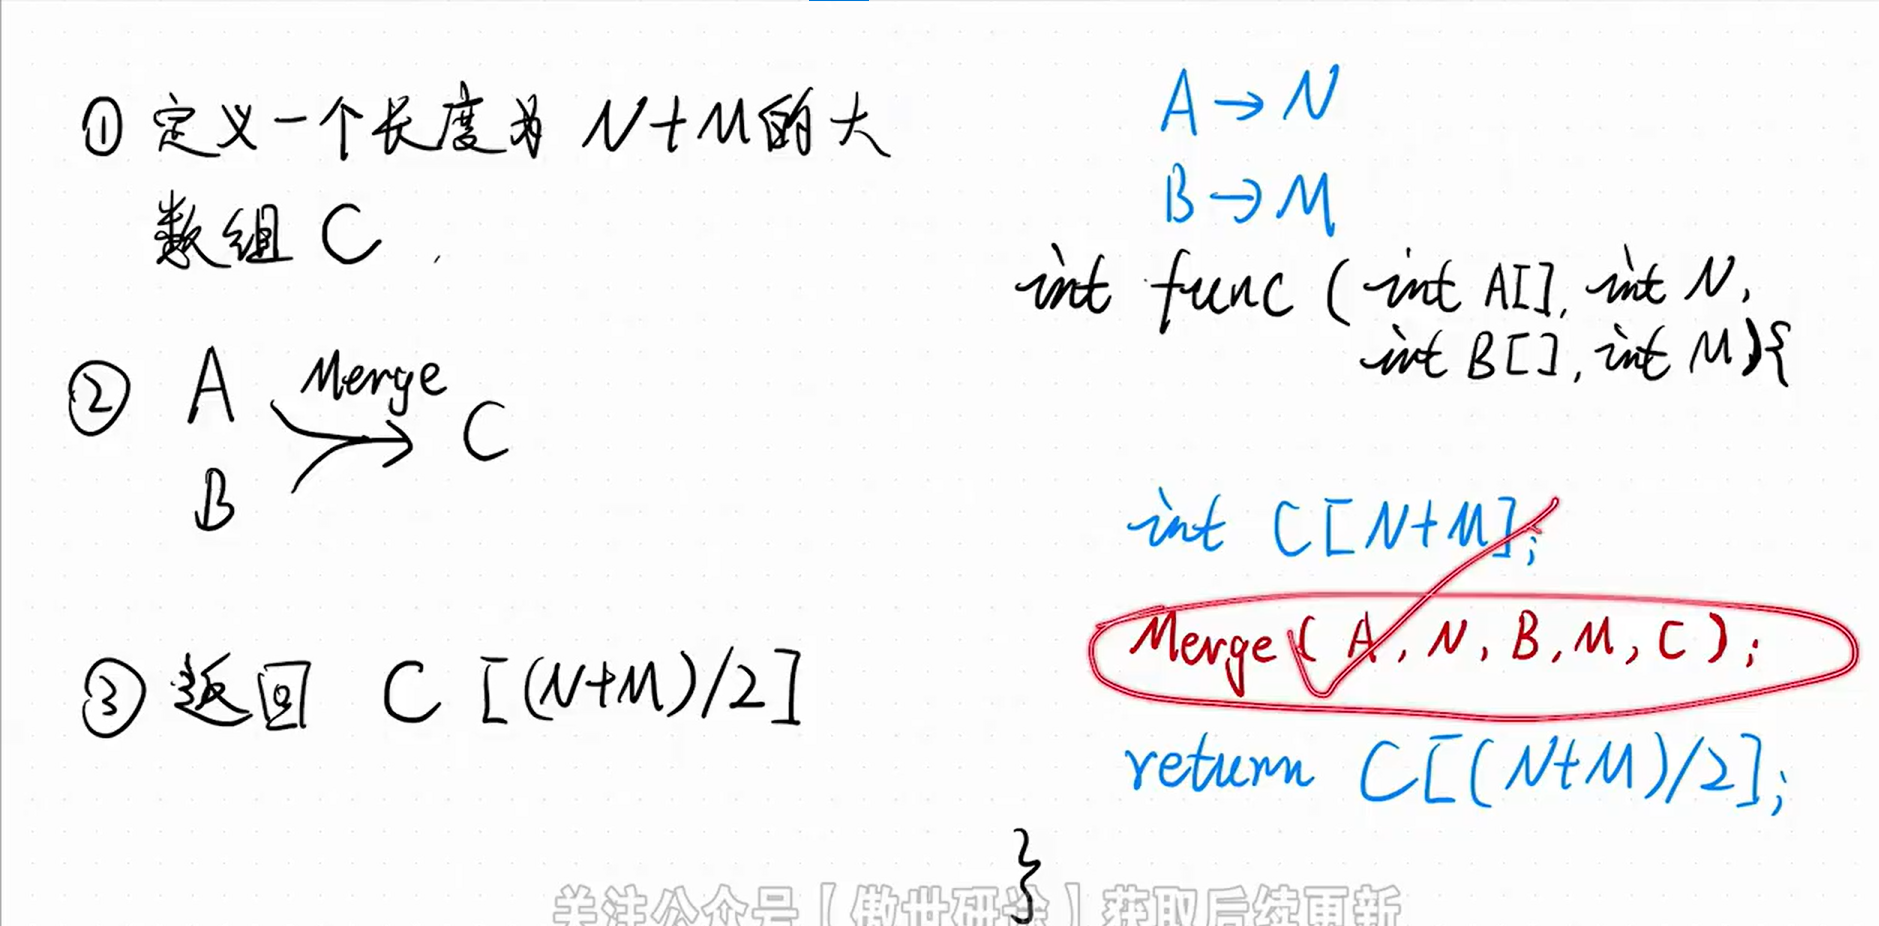 ① 定义一个长度为 N+M的大
数组 C
② A Merge C
B
③ 返回 C [(N+M)/2]
A → N
B → M
int func ( int A[], int N,
int B[], int M){
int C[N+M];
Merge( A, N, B, M, C );
return C[(N+M)/2];
}
关注公众号【傲世研途】获取后续更新